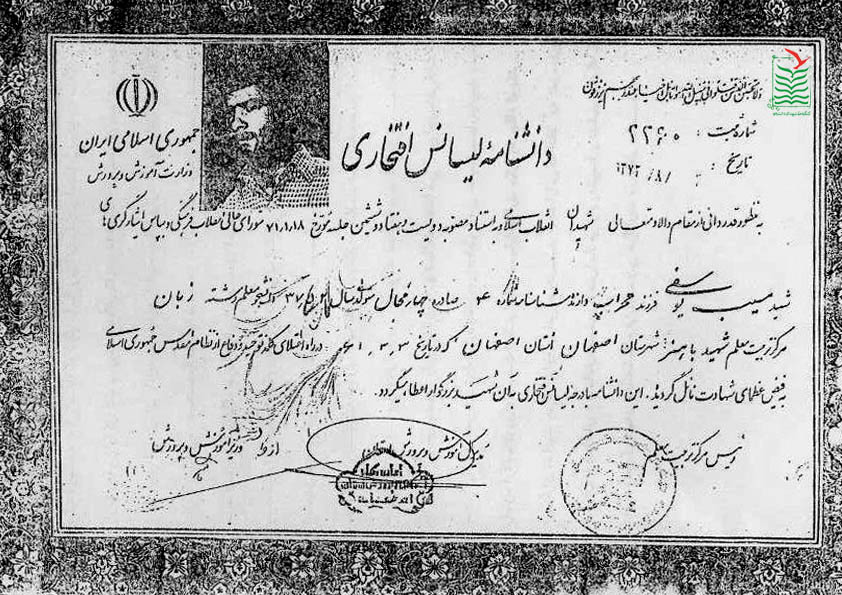 جمهوری اسلامی ایران
وزارت آموزش و پرورش
شماره ثبت : ۲۲۶۰
تاریخ : ۱۳۷۲/۸/
دانشنامهٔ لیسانس افتخاری
به منظور قدردانی از مقام والا و متعالی شهیدان انقلاب اسلامی و به استناد مصوبه دویست و هفتاد و ششمین جلسه مورخ ۷۱،۱،۱۸ شورای عالی انقلاب فرهنگی و بپاس ایثارگری های
شهید مسیب یوسفی فرزند محراب دارنده شناسنامه شماره ۴ صادره چهارمحال متولد سال ۳۷ دانشجو معلم رشته زبان
مرکز تربیت معلم شهید باهنر شهرستان اصفهان استان اصفهان که در تاریخ ۶۱،۳،۳ در راه اعتلای کلمه توحید و دفاع از نظام مقدس جمهوری اسلامی
به فیض عظمای شهادت نائل گردید. این دانشنامه با درجه لیسانس افتخاری به آن شهید بزرگوار اعطا میگردد.
رئیس مرکز تربیت معلم
مدیر کل آموزش و پرورش استان
از طرف وزیر آموزش و پرورش